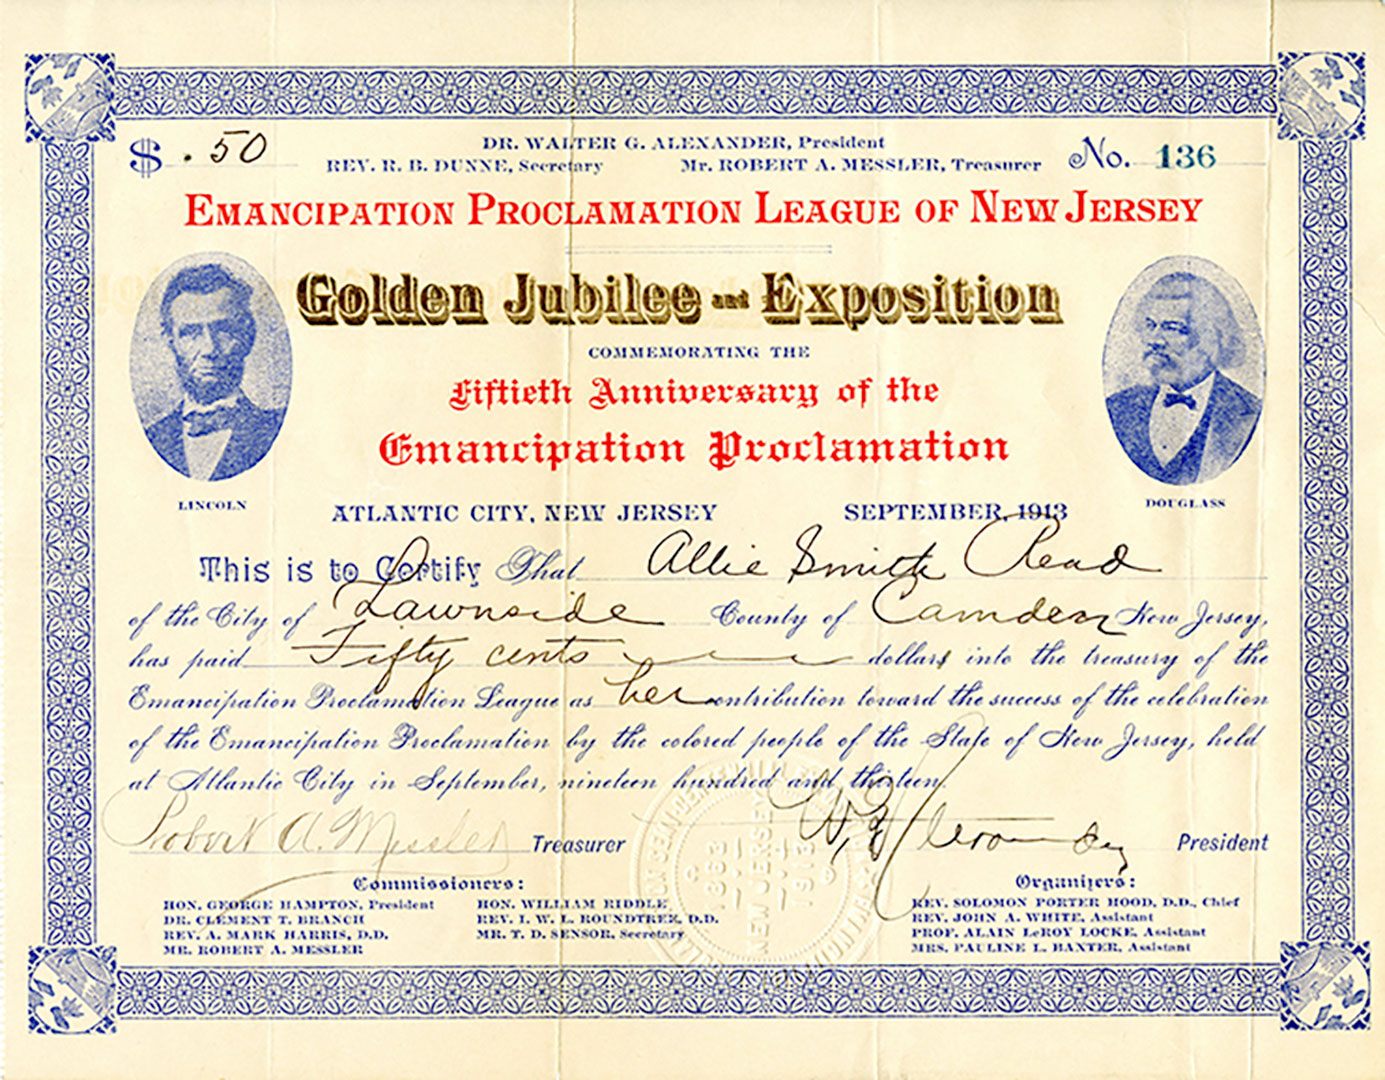 $ .50
DR. WALTER G. ALEXANDER, President
No. 136
REV. R. B. DUNNE, Secretary Mr. ROBERT A. MESSLER, Treasurer
EMANCIPATION PROCLAMATION LEAGUE OF NEW JERSEY
Golden Jubilee and Exposition
COMMEMORATING THE
Fiftieth Anniversary of the
Emancipation Proclamation
LINCOLN
DOUGLASS
ATLANTIC CITY, NEW JERSEY SEPTEMBER, 1913
This is to Certify That Allie Smith Read
of the City of Lawnside County of Camden New Jersey,
has paid Fifty cents dollars into the treasury of the
Emancipation Proclamation League as her contribution toward the success of the celebration
of the Emancipation Proclamation by the colored people of the State of New Jersey, held
at Atlantic City in September, nineteen hundred and thirteen.
Robert A. Messler Treasurer W. G. Alexander President
Commissioners:
HON. GEORGE HAMPTON, President
DR. CLEMENT T. BRANCH
REV. A. MARK HARRIS, D.D.
MR. ROBERT A. MESSLER
HON. WILLIAM RIDDLE
REV. I. W. L. ROUNDTREE, D.D.
MR. T. D. SENSOR, Secretary
Organizers:
REV. SOLOMON PORTER HOOD, D.D., Chief
REV. JOHN A. WHITE, Assistant
PROF. ALAIN LeROY LOCKE, Assistant
MRS. PAULINE L. BAXTER, Assistant
1863
NEW JERSEY
1913